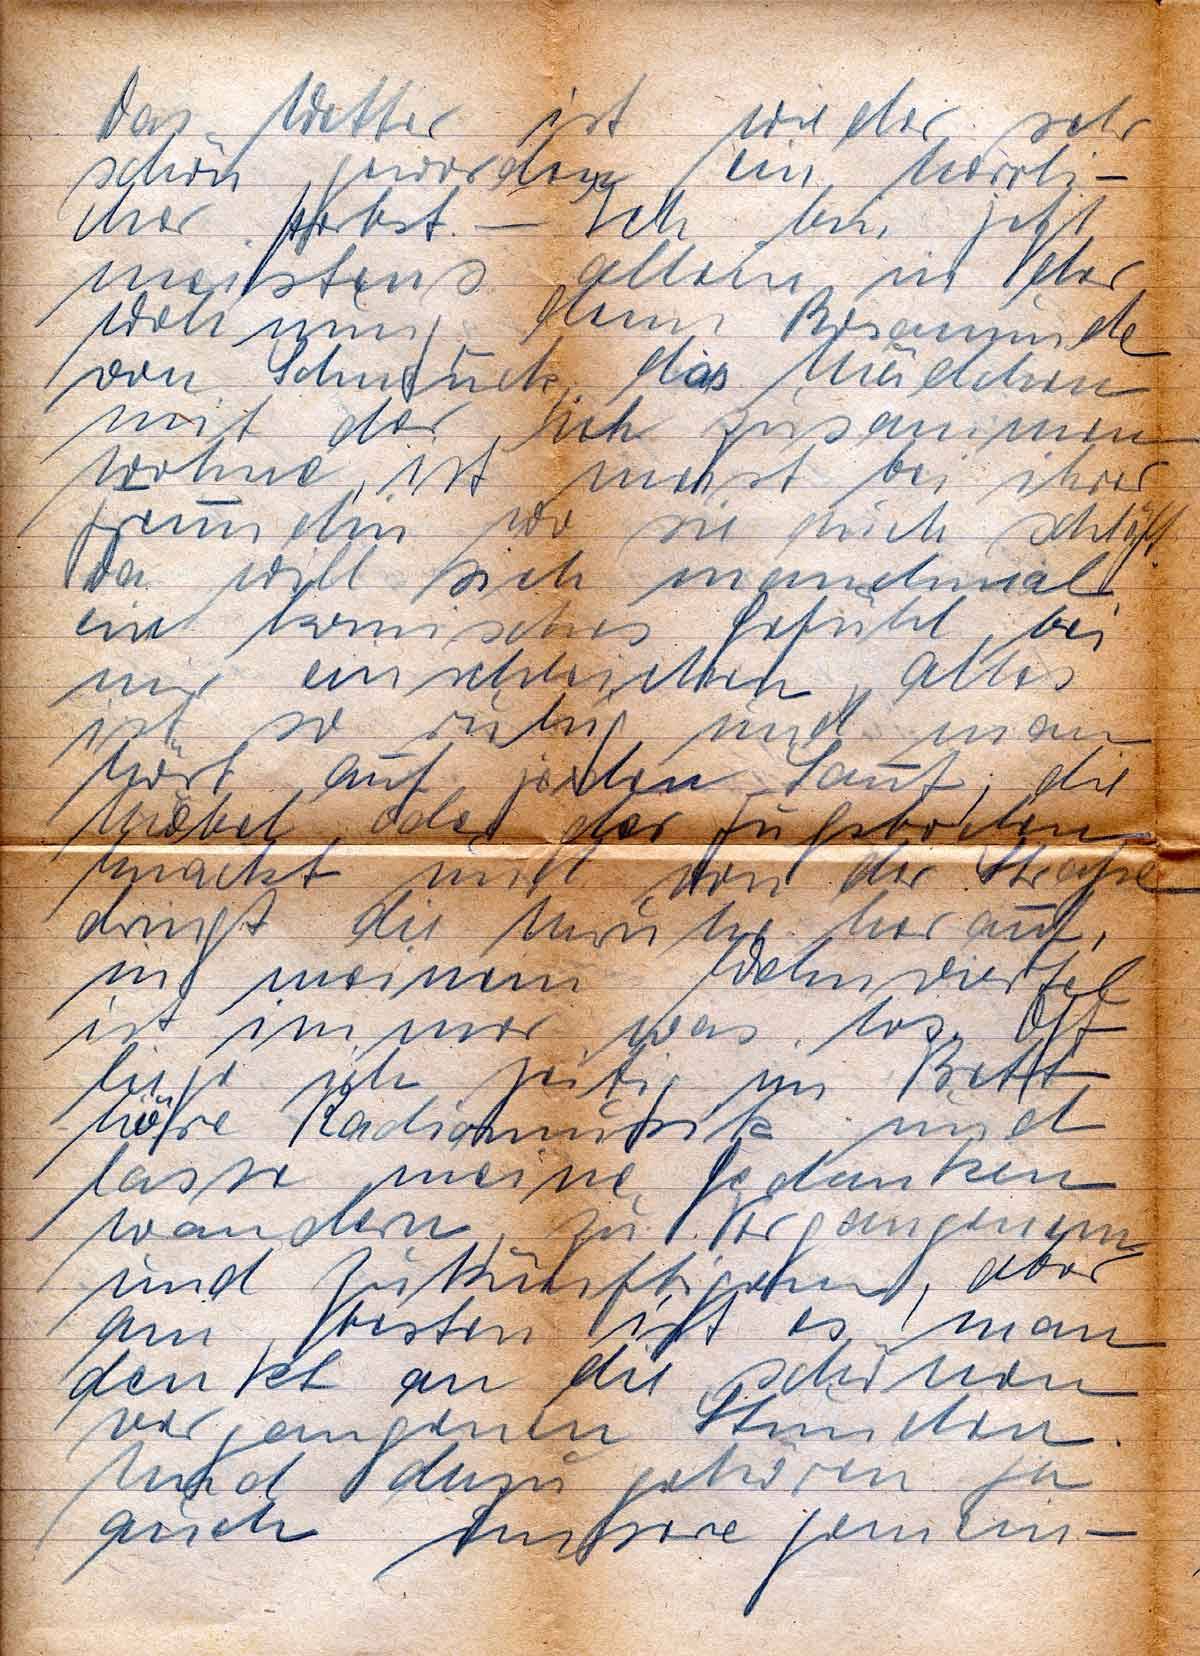 Das Wetter ist wieder sehr
schön geworden, ein herrli-
cher Herbst. — Ich bin jetzt
meistens allein in der
Wohnung, denn Rosamunde
von Schmück, das Mädchen
mit der ich zusammen
wohne, ist meist bei ihrer
Freundin wo sie auch schläft.
Da will sich manchmal
ein komisches Gefühl bei
mir einschleichen, alles
ist so ruhig und man
hört auf jeden Laut, die
Möbel oder der Fußboden
knackt und von der Straße
dringt die Unruhe herauf,
in meinem Wohnviertel
ist immer was los. Oft
liege ich zeitig im Bett
höre Radiomusik und
lasse meine Gedanken
wandern, zu Vergangenem
und Zukünftigem, aber
am besten ist es, man
denkt an die schönen
vergangenen Stunden.
Und dazu gehören ja
auch unsere gemein-